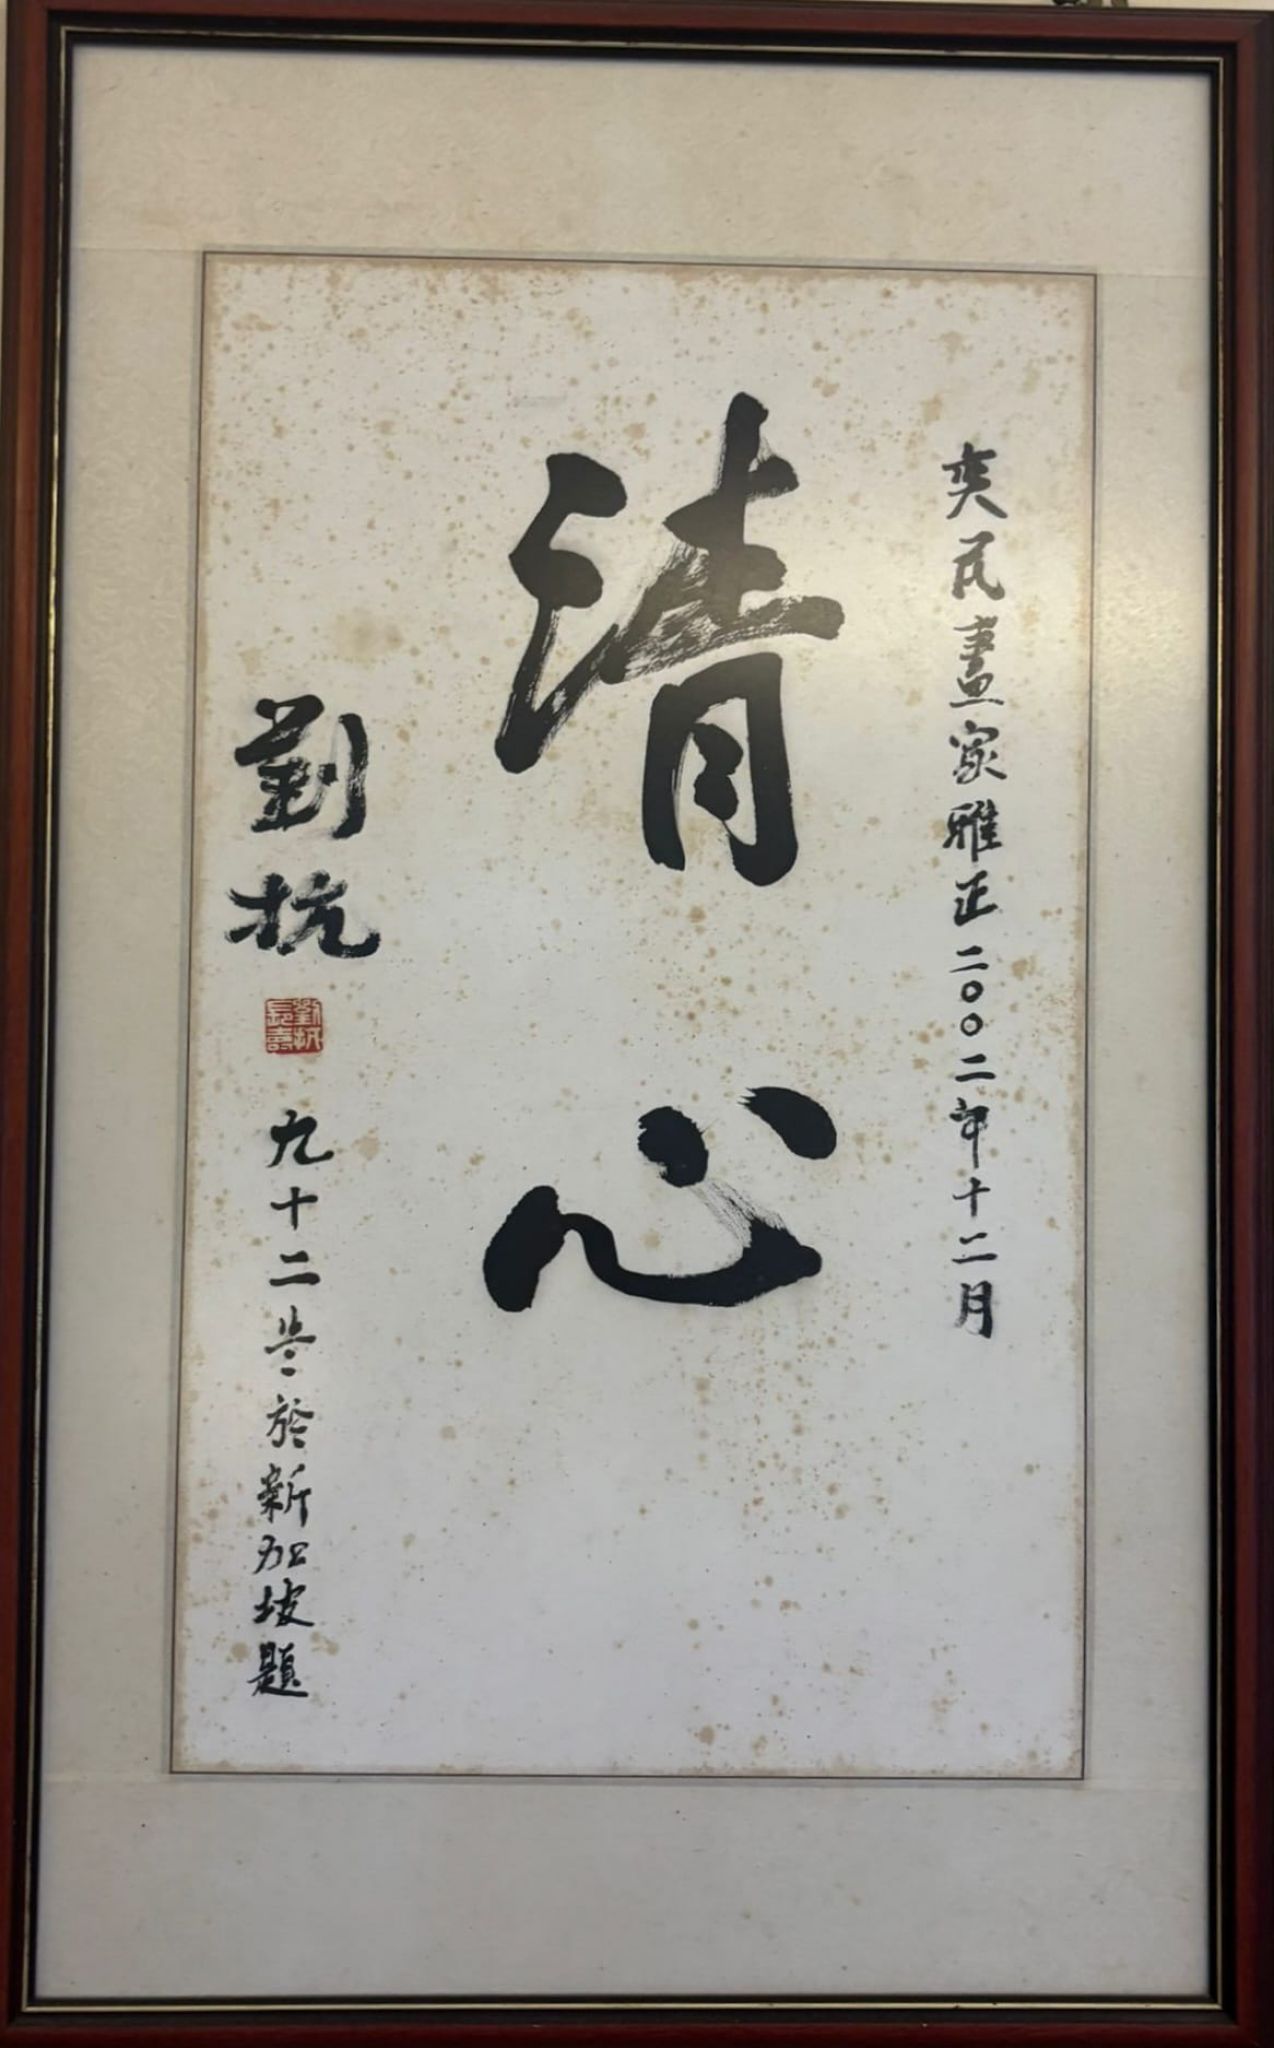 奕民畫家雅正二〇〇二年十二月
清心
劉抗
劉抗長壽
九十二歲於新加坡題